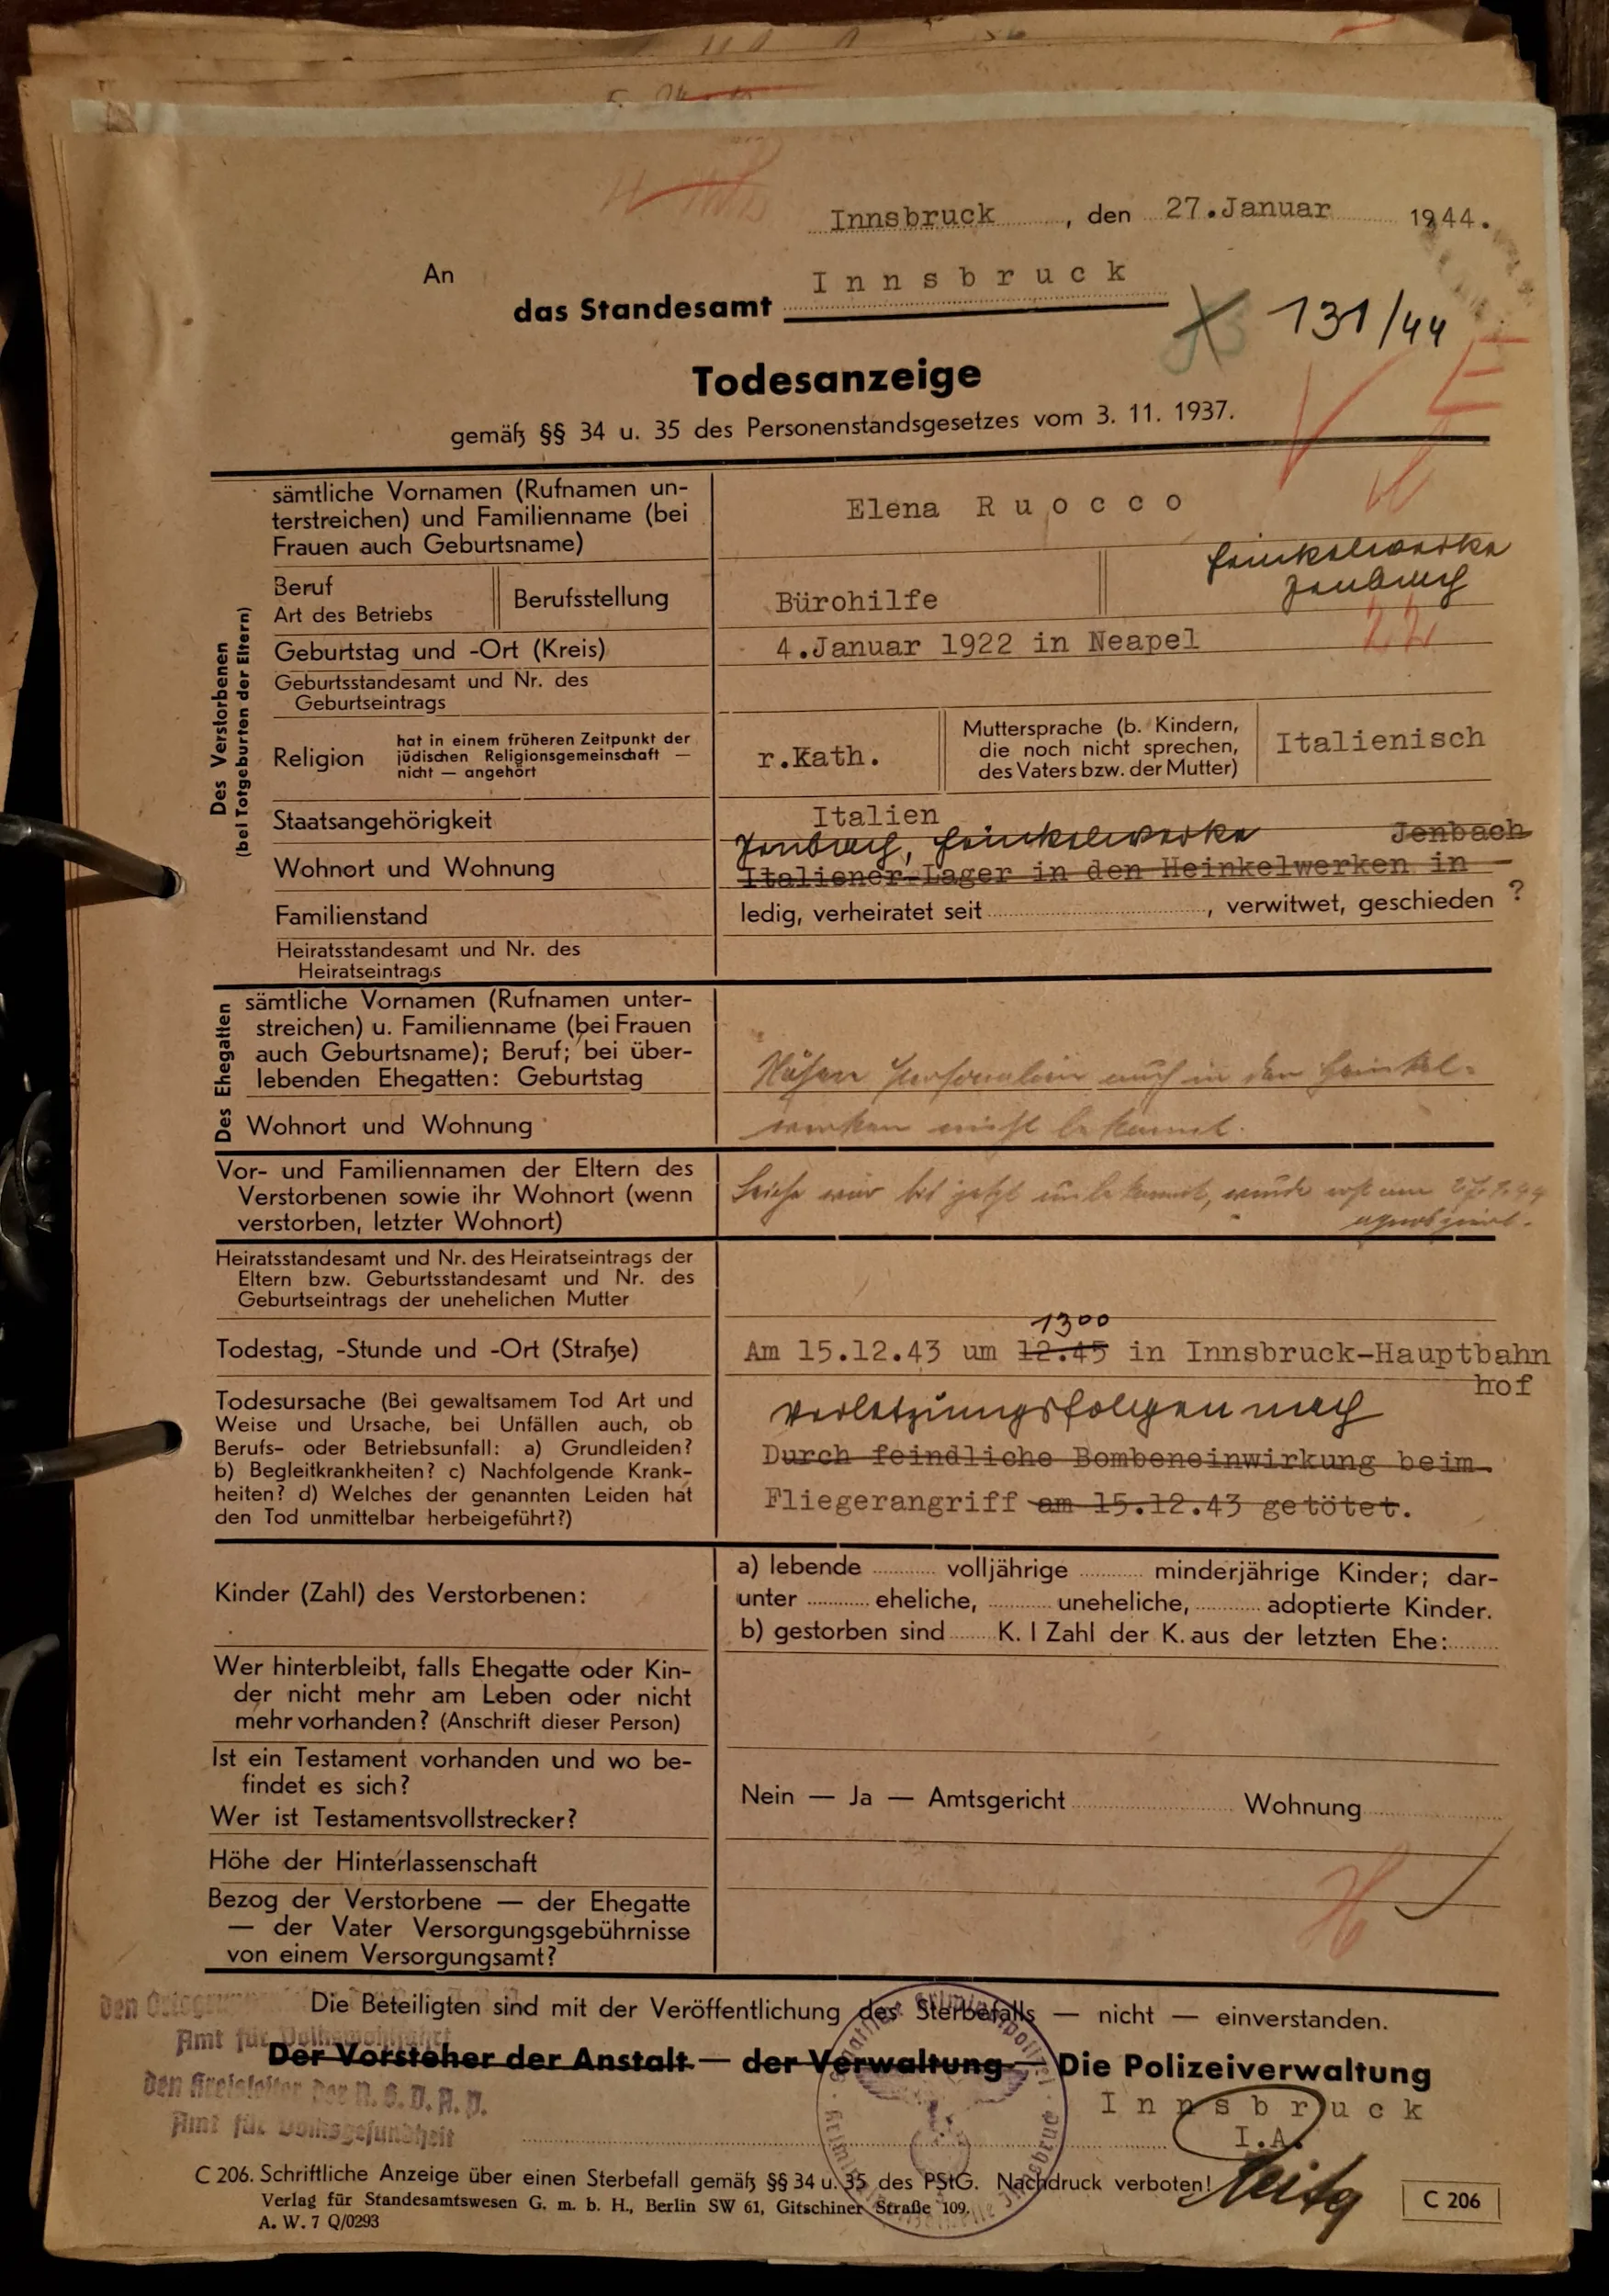 Innsbruck, den 27.Januar 1944.
An
das Standesamt Innsbruck
131/44
Todesanzeige
gemäß §§ 34 u. 35 des Personenstandsgesetzes vom 3. 11. 1937.
Des Verstorbenen
(bei Totgeburten der Eltern)
sämtliche Vornamen (Rufnamen un-
terstreichen) und Familienname (bei
Frauen auch Geburtsname)
Elena Ruocco
Beruf
Art des Betriebs
Berufsstellung
Bürohilfe
Heinkelwerke
Jenbach
Geburtstag und -Ort (Kreis)
4.Januar 1922 in Neapel
22
Geburtsstandesamt und Nr. des
Geburtseintrags
Religion
hat in einem früheren Zeitpunkt der
jüdischen Religionsgemeinschaft —
nicht — angehört
r.Kath.
Muttersprache (b. Kindern,
die noch nicht sprechen,
des Vaters bzw. der Mutter)
Italienisch
Staatsangehörigkeit
Italien
Wohnort und Wohnung
Jenbach, Heinkelwerke
Jenbach
Italiener-Lager in den Heinkelwerken in
Familienstand
ledig, verheiratet seit, verwitwet, geschieden ?
Heiratsstandesamt und Nr. des
Heiratseintrags
Des Ehegatten
sämtliche Vornamen (Rufnamen unter-
streichen) u. Familienname (bei Frauen
auch Geburtsname); Beruf; bei über-
lebenden Ehegatten: Geburtstag
Nähere Personalien auch in den Heinkel-
Wohnort und Wohnung
werken nicht bekannt.
Vor- und Familiennamen der Eltern des
Verstorbenen sowie ihr Wohnort (wenn
verstorben, letzter Wohnort)
Leiche war bis jetzt unbekannt, wurde erst am 27.1.44
agnosziert.
Heiratsstandesamt und Nr. des Heiratseintrags der
Eltern bzw. Geburtsstandesamt und Nr. des
Geburtseintrags der unehelichen Mutter
Todestag, -Stunde und -Ort (Straße)
1300
Am 15.12.43 um 12.45 in Innsbruck-Hauptbahn
hof
Todesursache (Bei gewaltsamem Tod Art und
Weise und Ursache, bei Unfällen auch, ob
Berufs- oder Betriebsunfall: a) Grundleiden?
b) Begleitkrankheiten? c) Nachfolgende Krank-
heiten? d) Welches der genannten Leiden hat
den Tod unmittelbar herbeigeführt?)
Verletzungsfolgen nach
Durch feindliche Bombeneinwirkung beim
Fliegerangriff am 15.12.43 getötet.
Kinder (Zahl) des Verstorbenen:
a) lebende volljährige minderjährige Kinder; dar-
unter eheliche, uneheliche, adoptierte Kinder.
b) gestorben sind K. I Zahl der K. aus der letzten Ehe:
Wer hinterbleibt, falls Ehegatte oder Kin-
der nicht mehr am Leben oder nicht
mehr vorhanden? (Anschrift dieser Person)
Ist ein Testament vorhanden und wo be-
findet es sich?
Wer ist Testamentsvollstrecker?
Nein — Ja — Amtsgericht Wohnung
Höhe der Hinterlassenschaft
Bezog der Verstorbene — der Ehegatte
— der Vater Versorgungsgebührnisse
von einem Versorgungsamt?
Die Beteiligten sind mit der Veröffentlichung des Sterbefalls — nicht — einverstanden.
Amt für Volkswohlfahrt
Der Vorsteher der Anstalt — der Verwaltung — Die Polizeiverwaltung
den Kreisleiter der N.S.D.A.P.
Amt für Volksgesundheit
Innsbruck
I.A.
C 206. Schriftliche Anzeige über einen Sterbefall gemäß §§ 34 u. 35 des PStG. Nachdruck verboten!
Verlag für Standesamtswesen G. m. b. H., Berlin SW 61, Gitschiner Straße 109.
A. W. 7 Q/0293
C 206